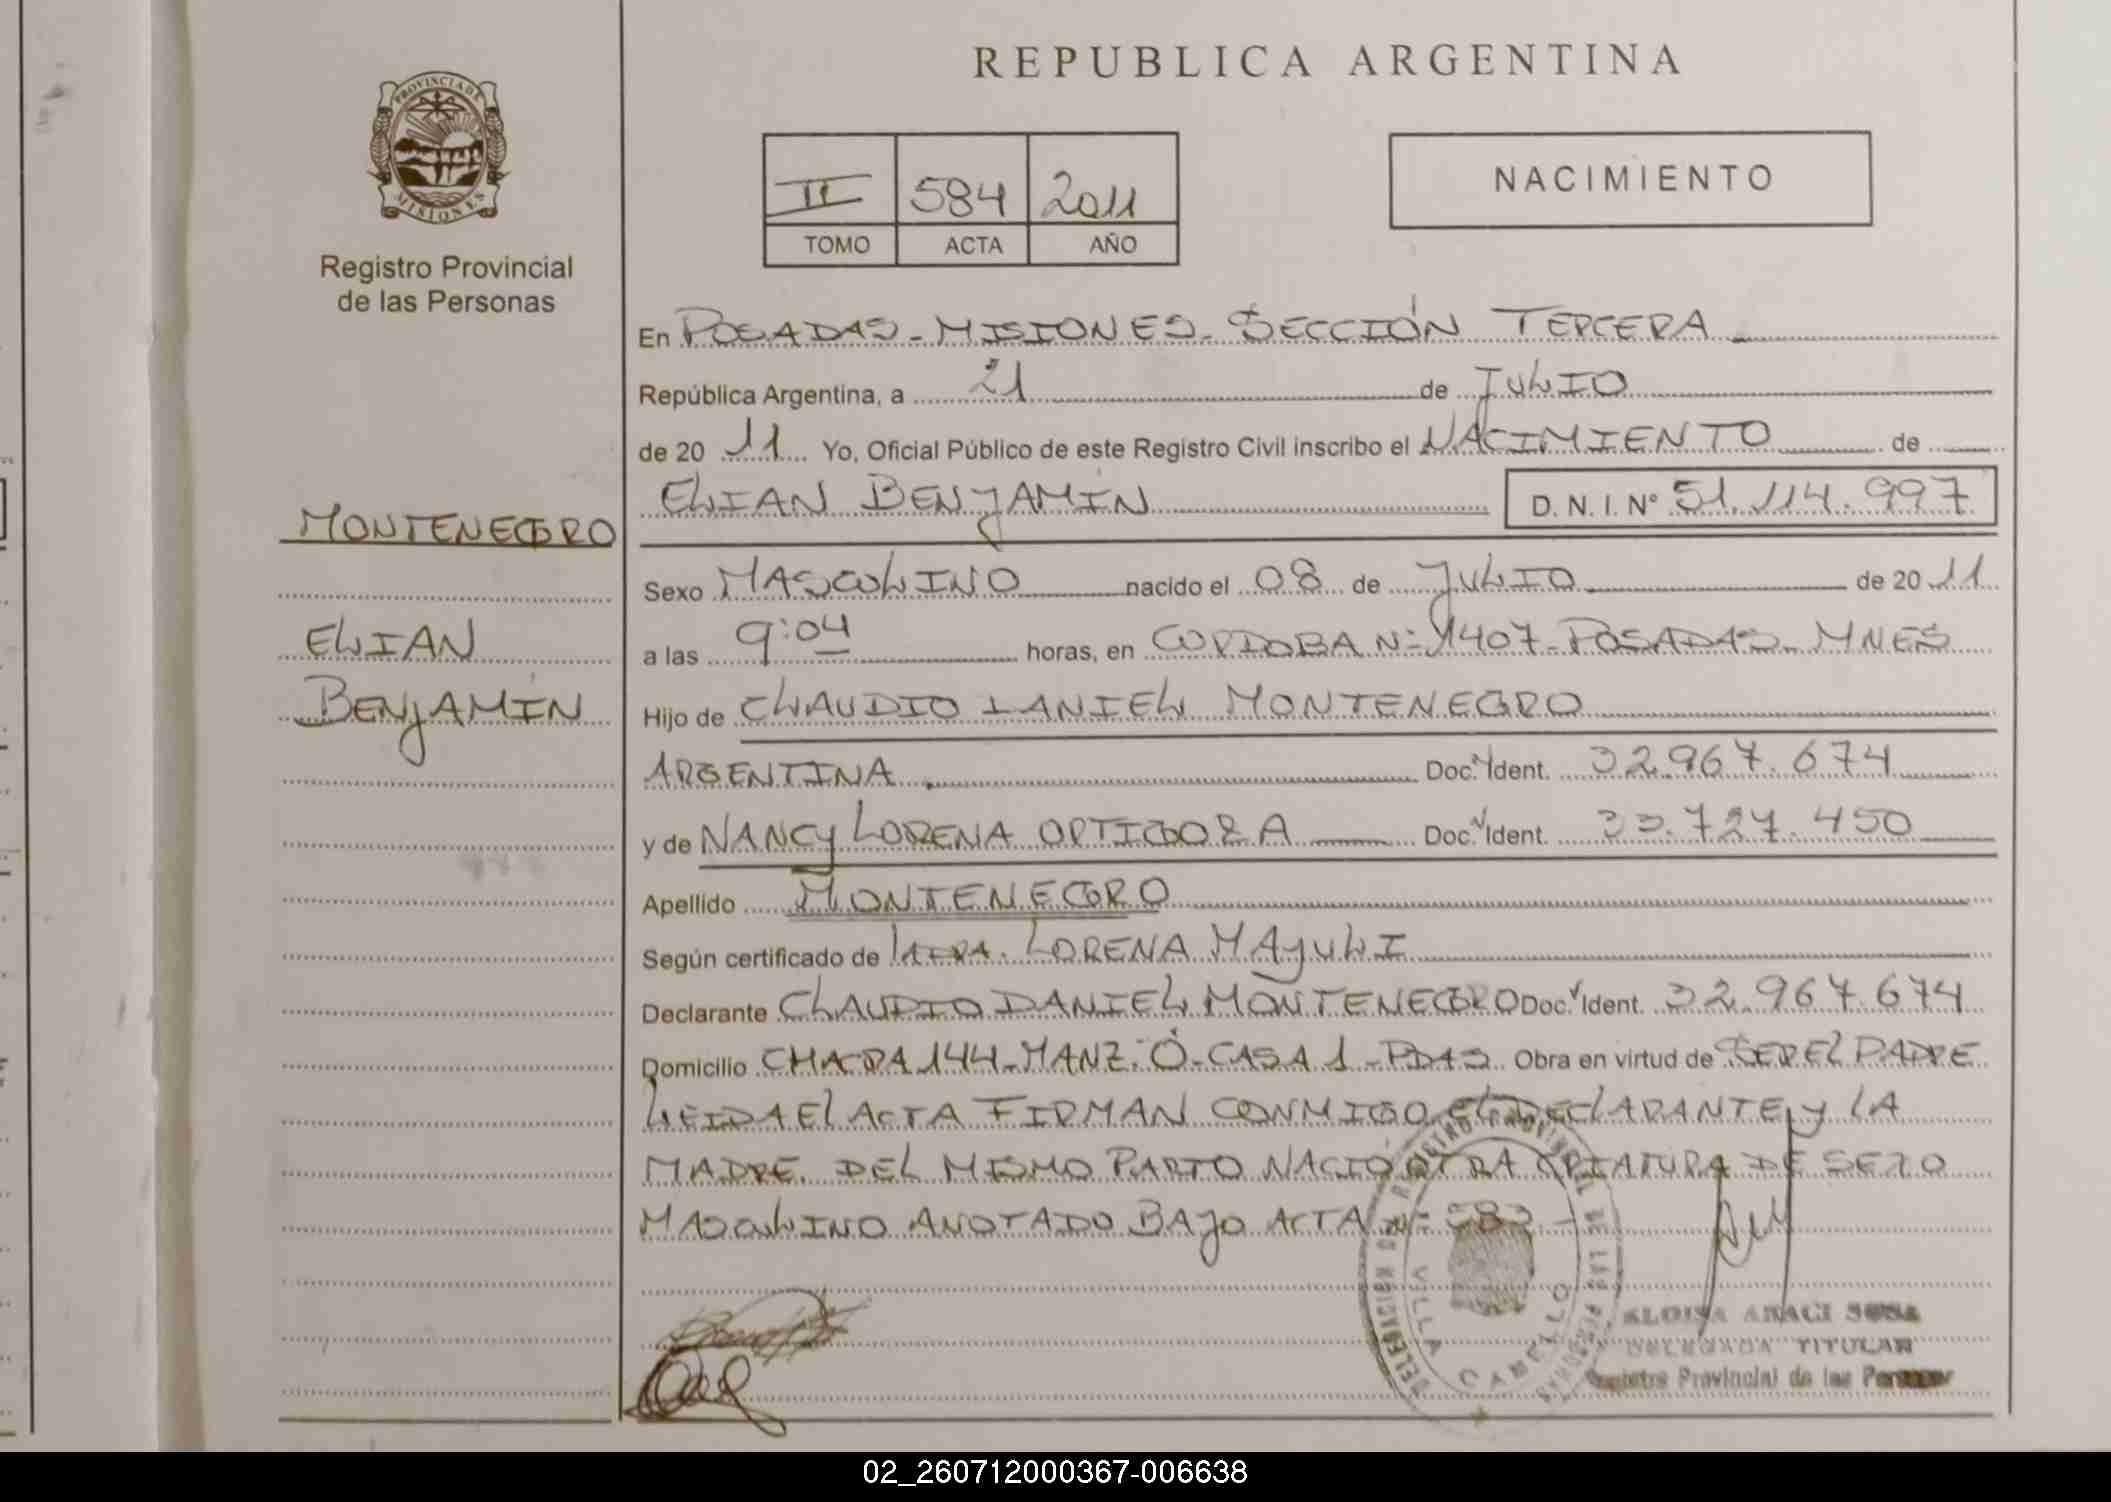 REPUBLICA ARGENTINA
PROVINCIA DE
MISIONES
Registro Provincial
de las Personas
II 584 2011
TOMO ACTA AÑO
NACIMIENTO
En POSADAS-MISIONES-SECCIÓN TERCERA
República Argentina, a 21 de JULIO
de 20 11 Yo, Oficial Público de este Registro Civil inscribo el NACIMIENTO de
ELIAN BENJAMIN D. N. I. Nº 51.114.997
MONTENEGRO
ELIAN
BENJAMIN
Sexo MASCULINO nacido el 08 de JULIO de 20 11
a las 9:04 horas, en CORDOBA Nº 1407-POSADAS-MNES
Hijo de CLAUDIO DANIEL MONTENEGRO
ARGENTINA Doc. Ident. 32.967.674
y de NANCY LORENA ORTIGOZA Doc. Ident. 33.727.450
Apellido MONTENEGRO
Según certificado de LORENA MAYULI
Declarante CLAUDIO DANIEL MONTENEGRO Doc. Ident. 32.967.674
Domicilio CHACRA 144-MANZ. O-CASA 1-PDAS Obra en virtud de SER EL PADRE
LEIDA EL ACTA FIRMAN CONMIGO EL DECLARANTE Y LA
MADRE. DEL MISMO PARTO NACIO OTRA CRIATURA DE SEXO
MASCULINO ANOTADO BAJO ACTA Nº 583
VILLA CABELLO
DELEGADA TITULAR
Registro Provincial de las Personas
02_260712000367-006638